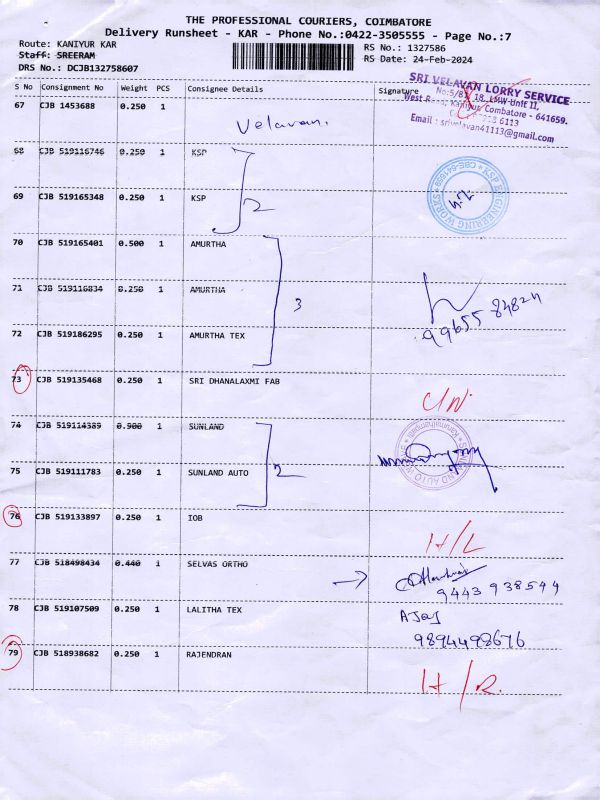 THE PROFESSIONAL COURIERS, COIMBATORE
Delivery Runsheet - KAR - Phone No.:0422-3505555 - Page No.:7
Route: KANIYUR KAR RS No.: 1327586
Staff: SREERAM RS Date: 24-Feb-2024
DRS No.: DCJB132758607
S No Consignment No Weight PCS Consignee Details Signature
SRI VELAVAN LORRY SERVICE
67 CJB 1453688 0.250 1
LMW Unit II,
West Kaniyur, Coimbatore - 641659.
6113
Email : srivelavan41113@gmail.com
Velavan.
68 CJB 519116746 0.250 1 KSP
KSP ENGINEERING WORKS
69 CJB 519165348 0.250 1 KSP
2
70 CJB 519165401 0.500 1 AMURTHA
71 CJB 519116834 0.250 1 AMURTHA
3
99655 84824
72 CJB 519186295 0.250 1 AMURTHA TEX
73 CJB 519135468 0.250 1 SRI DHANALAXMI FAB
74 CJB 519114389 0.900 1 SUNLAND
75 CJB 519111783 0.250 1 SUNLAND AUTO
2
76 CJB 519133897 0.250 1 IOB
H/L
77 CJB 518498434 0.440 1 SELVAS ORTHO
9443 938544
78 CJB 519107509 0.250 1 LALITHA TEX
9894498676
79 CJB 518938682 0.250 1 RAJENDRAN
H/R.